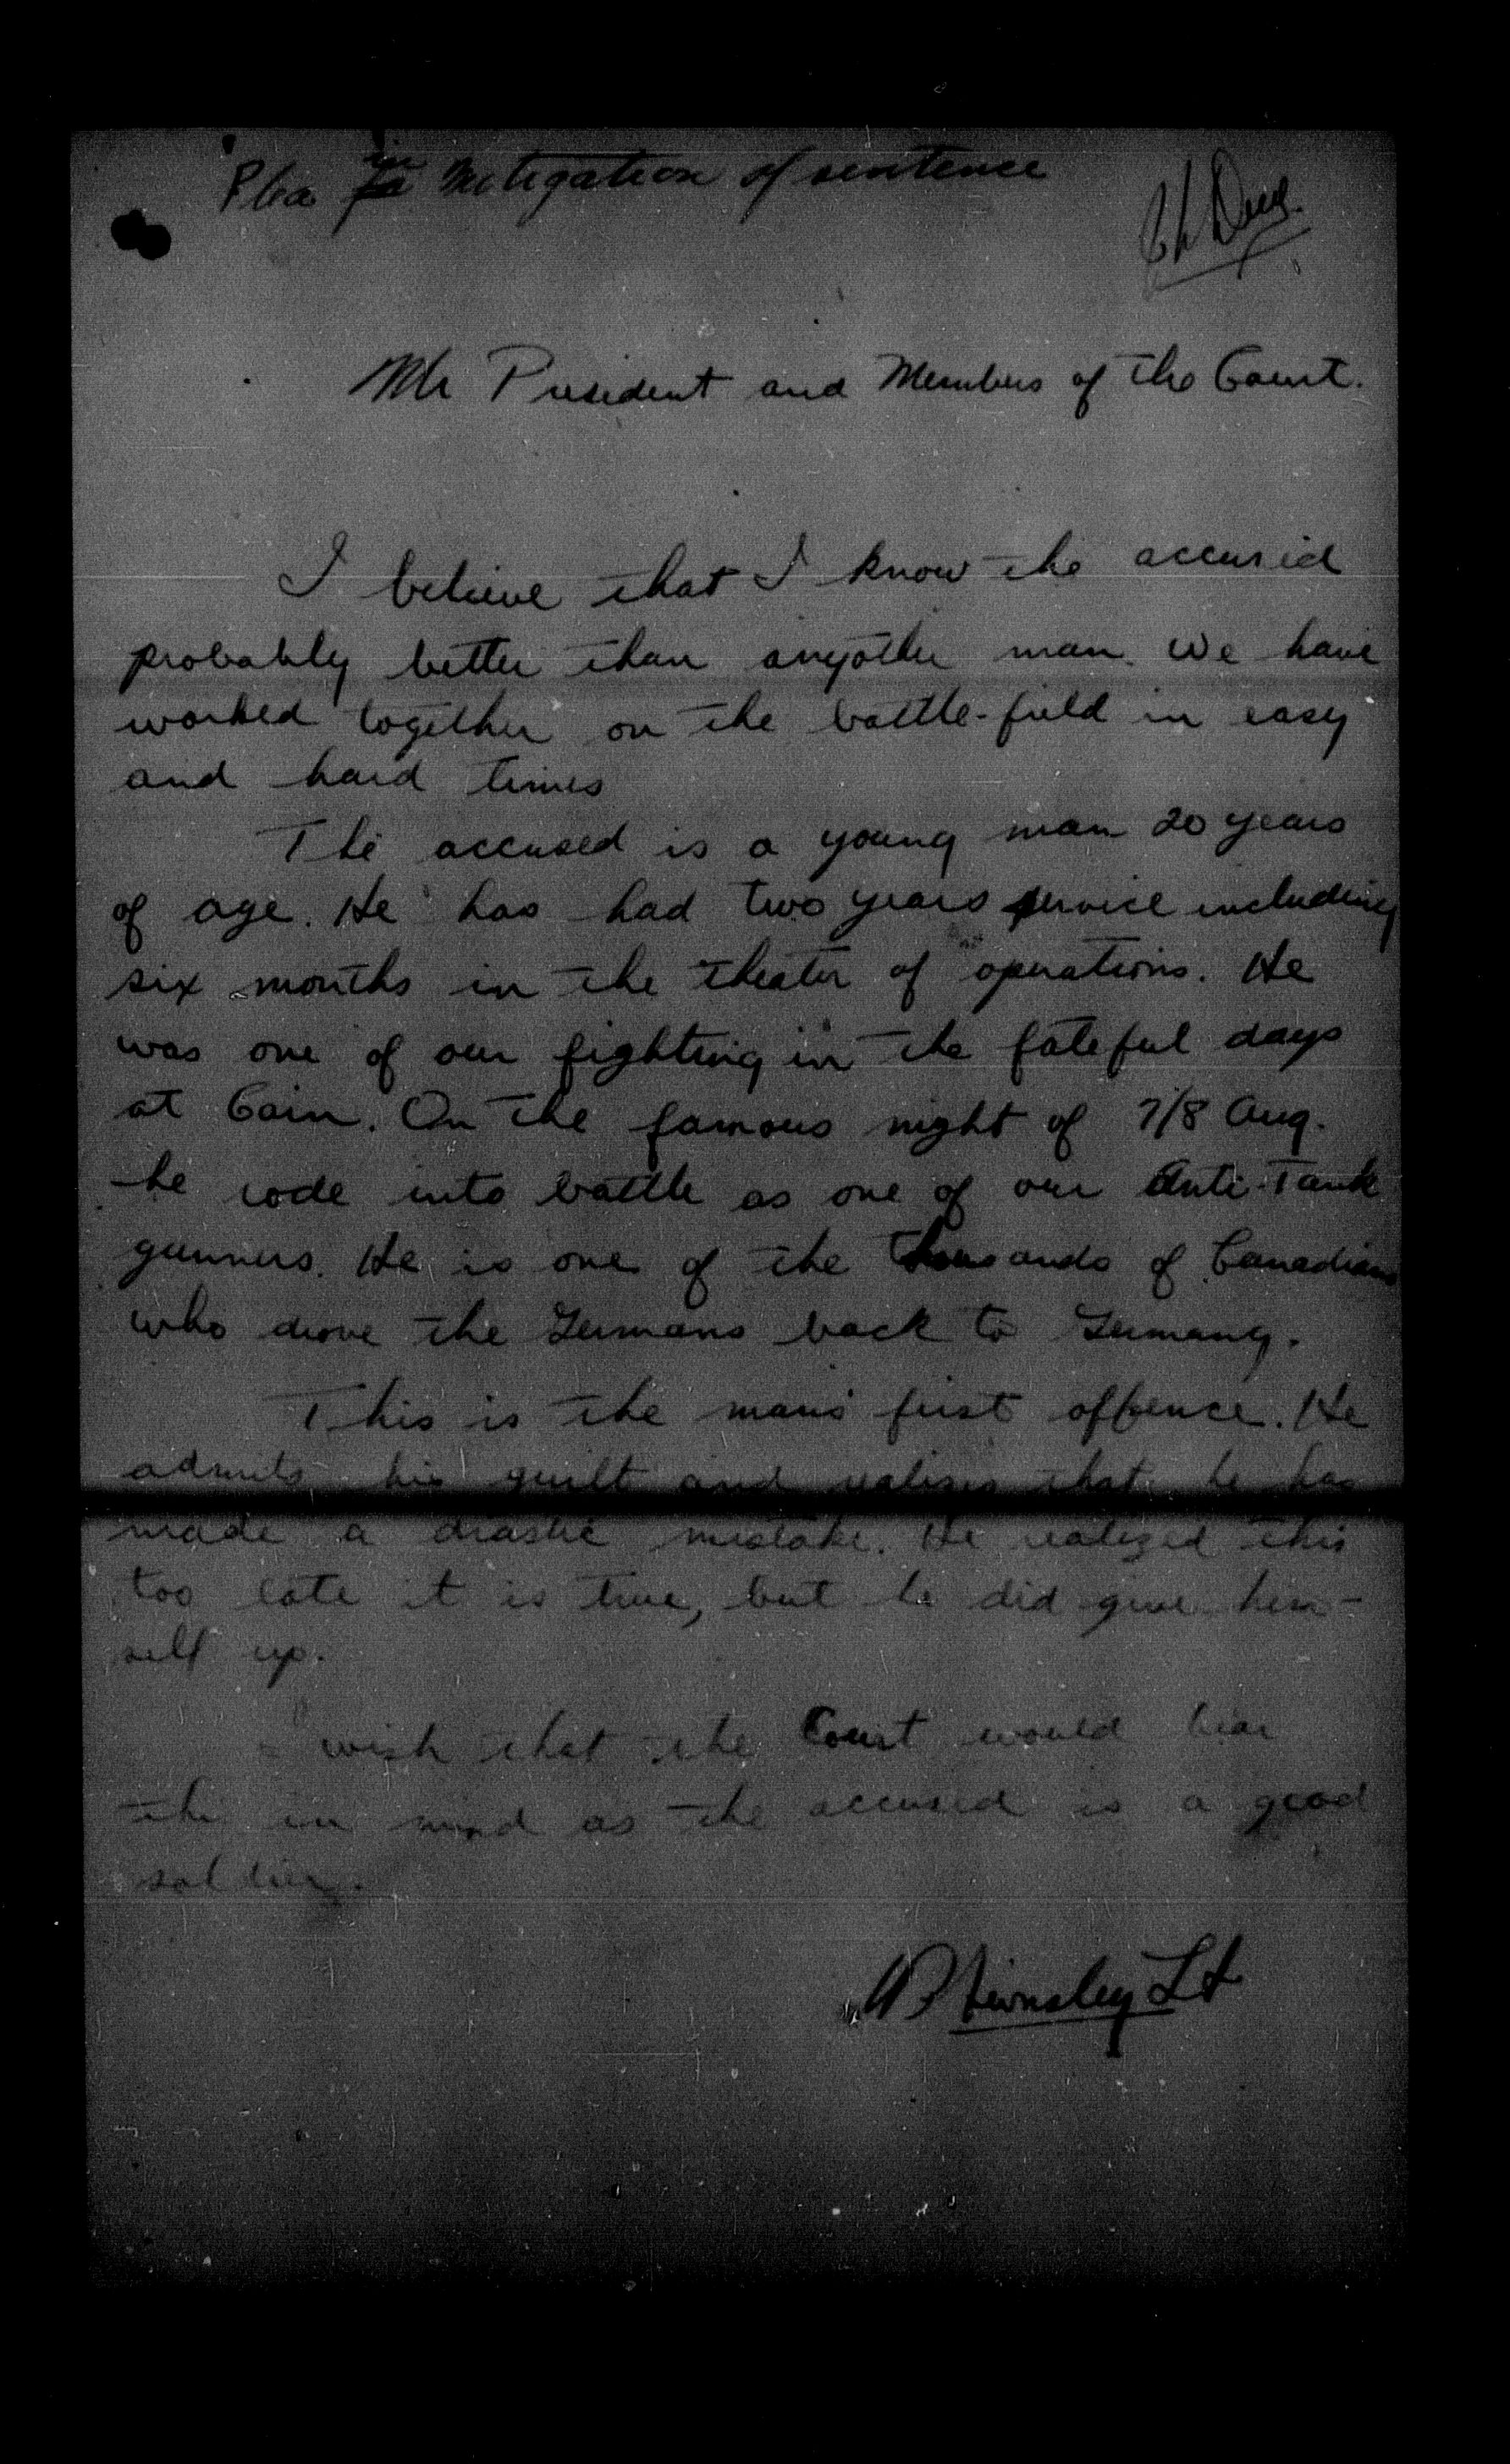 Plea in Mitigation of sentence
Mr President and Members of the Court.
I believe that I know the accused
probably better than anyother man. We have
worked together on the battle-field in easy
and hard times
The accused is a young man 20 years
of age. He has had two years service including
six months in the theater of operations. He
was one of our fighting in the fateful days
at Cain. On the famous night of 7/8 Aug.
he rode into battle as one of our Anti-Tank
gunners. He is one of the thousands of Canadians
who drove the Germans back to Germany.
This is the mans first offence. He
admits his guilt and realises that he has
made a drastic mistake. He realized this
too late it is true, but he did give him-
self up.
wish that the Court would bear
in mind as the accused is a good
soldier.
Lt